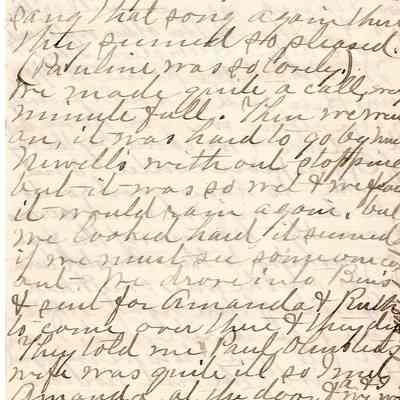 sang that song again there
They seemed so pleased.
(Pauline was so lovely.)
We made quite a call, every
minute full. Then we went
on, it was hard to go by
Newells without stopping
but it was so wet & we
it would rain again, but
we looked hard it seemed
if we must see someone
out. We drove into
& sent for Amanda & Ruth
to come over there & they did
They told me Paul
wife was quite ill so
Amanda at the door, & we